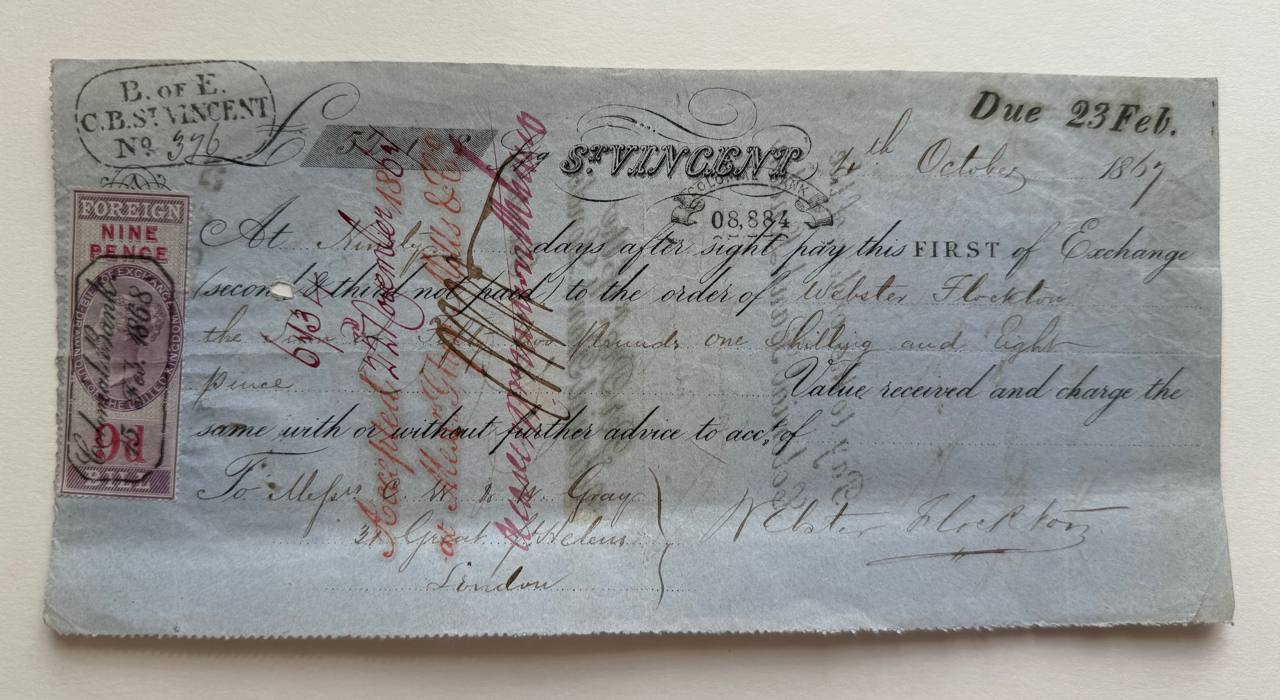 B. OF E.
C.B. ST. VINCENT
No. 376
£
ST. VINCENT 4th October 1867
Due 23 Feb.
COLONIAL BANK
08,884
FOREIGN
NINE
PENCE
BILL OF EXCHANGE
Colonial Bank
25 Feb 1868
9d
At Ninety days after sight pay this FIRST of Exchange
(second & third not paid) to the order of Webster Flockton
the Sum of Fifty two Pounds one Shilling and Eight
pence Value received and charge the
same with or without further advice to acct. of
To Messrs C. W. & W. Gray
31 Great St Helens
London
Webster Flockton
Accepted 22nd November 1867
at Messrs
& Co